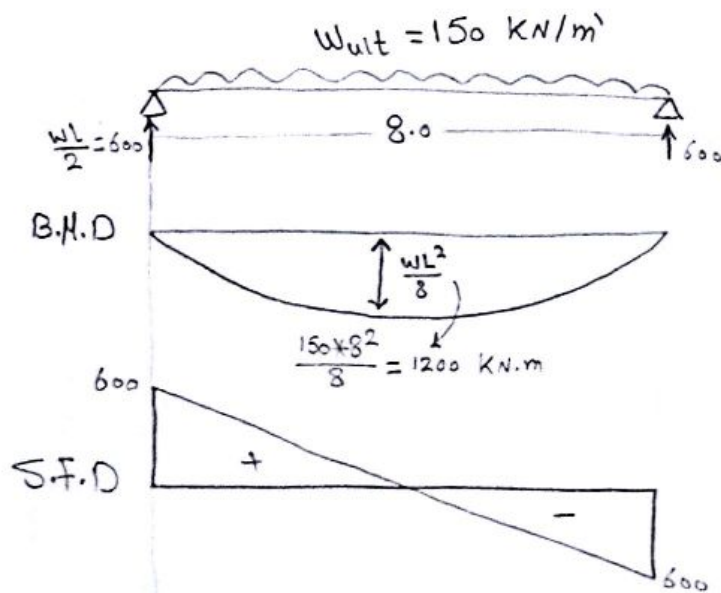 Wult = 150 KN/m'
WL/2 = 600
8.0
600
B.M.D
WL²/8
150*8²/8 = 1200 KN.m
600
S.F.D
+
-
600